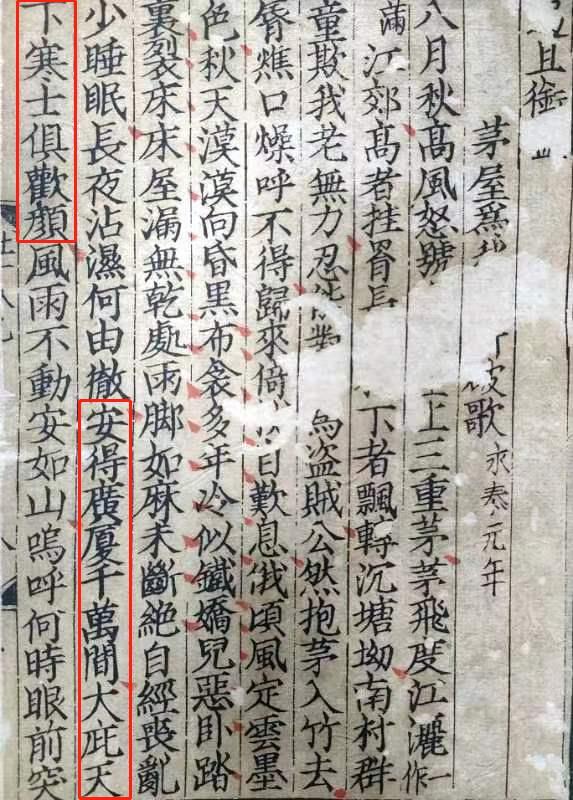 且銜
茅屋爲 歌 永泰元年
八月秋髙風怒號 上三重茅茅飛度江灑一作
滿江郊髙者挂罥長 下者飄轉沉塘坳南村群
童欺我老無力忍能對 爲盜賊公然抱茅入竹去
脣燋口燥呼不得歸來倚 自歎息俄頃風定雲墨
色秋天漠漠向昏黑布衾多年冷似鐵嬌兒惡卧踏
裏裂床床屋漏無乾處雨脚如麻未斷絶自經喪亂
少睡眠長夜沾濕何由徹安得廣厦千萬間大庇天
下寒士俱歡顔風雨不動安如山嗚呼何時眼前突